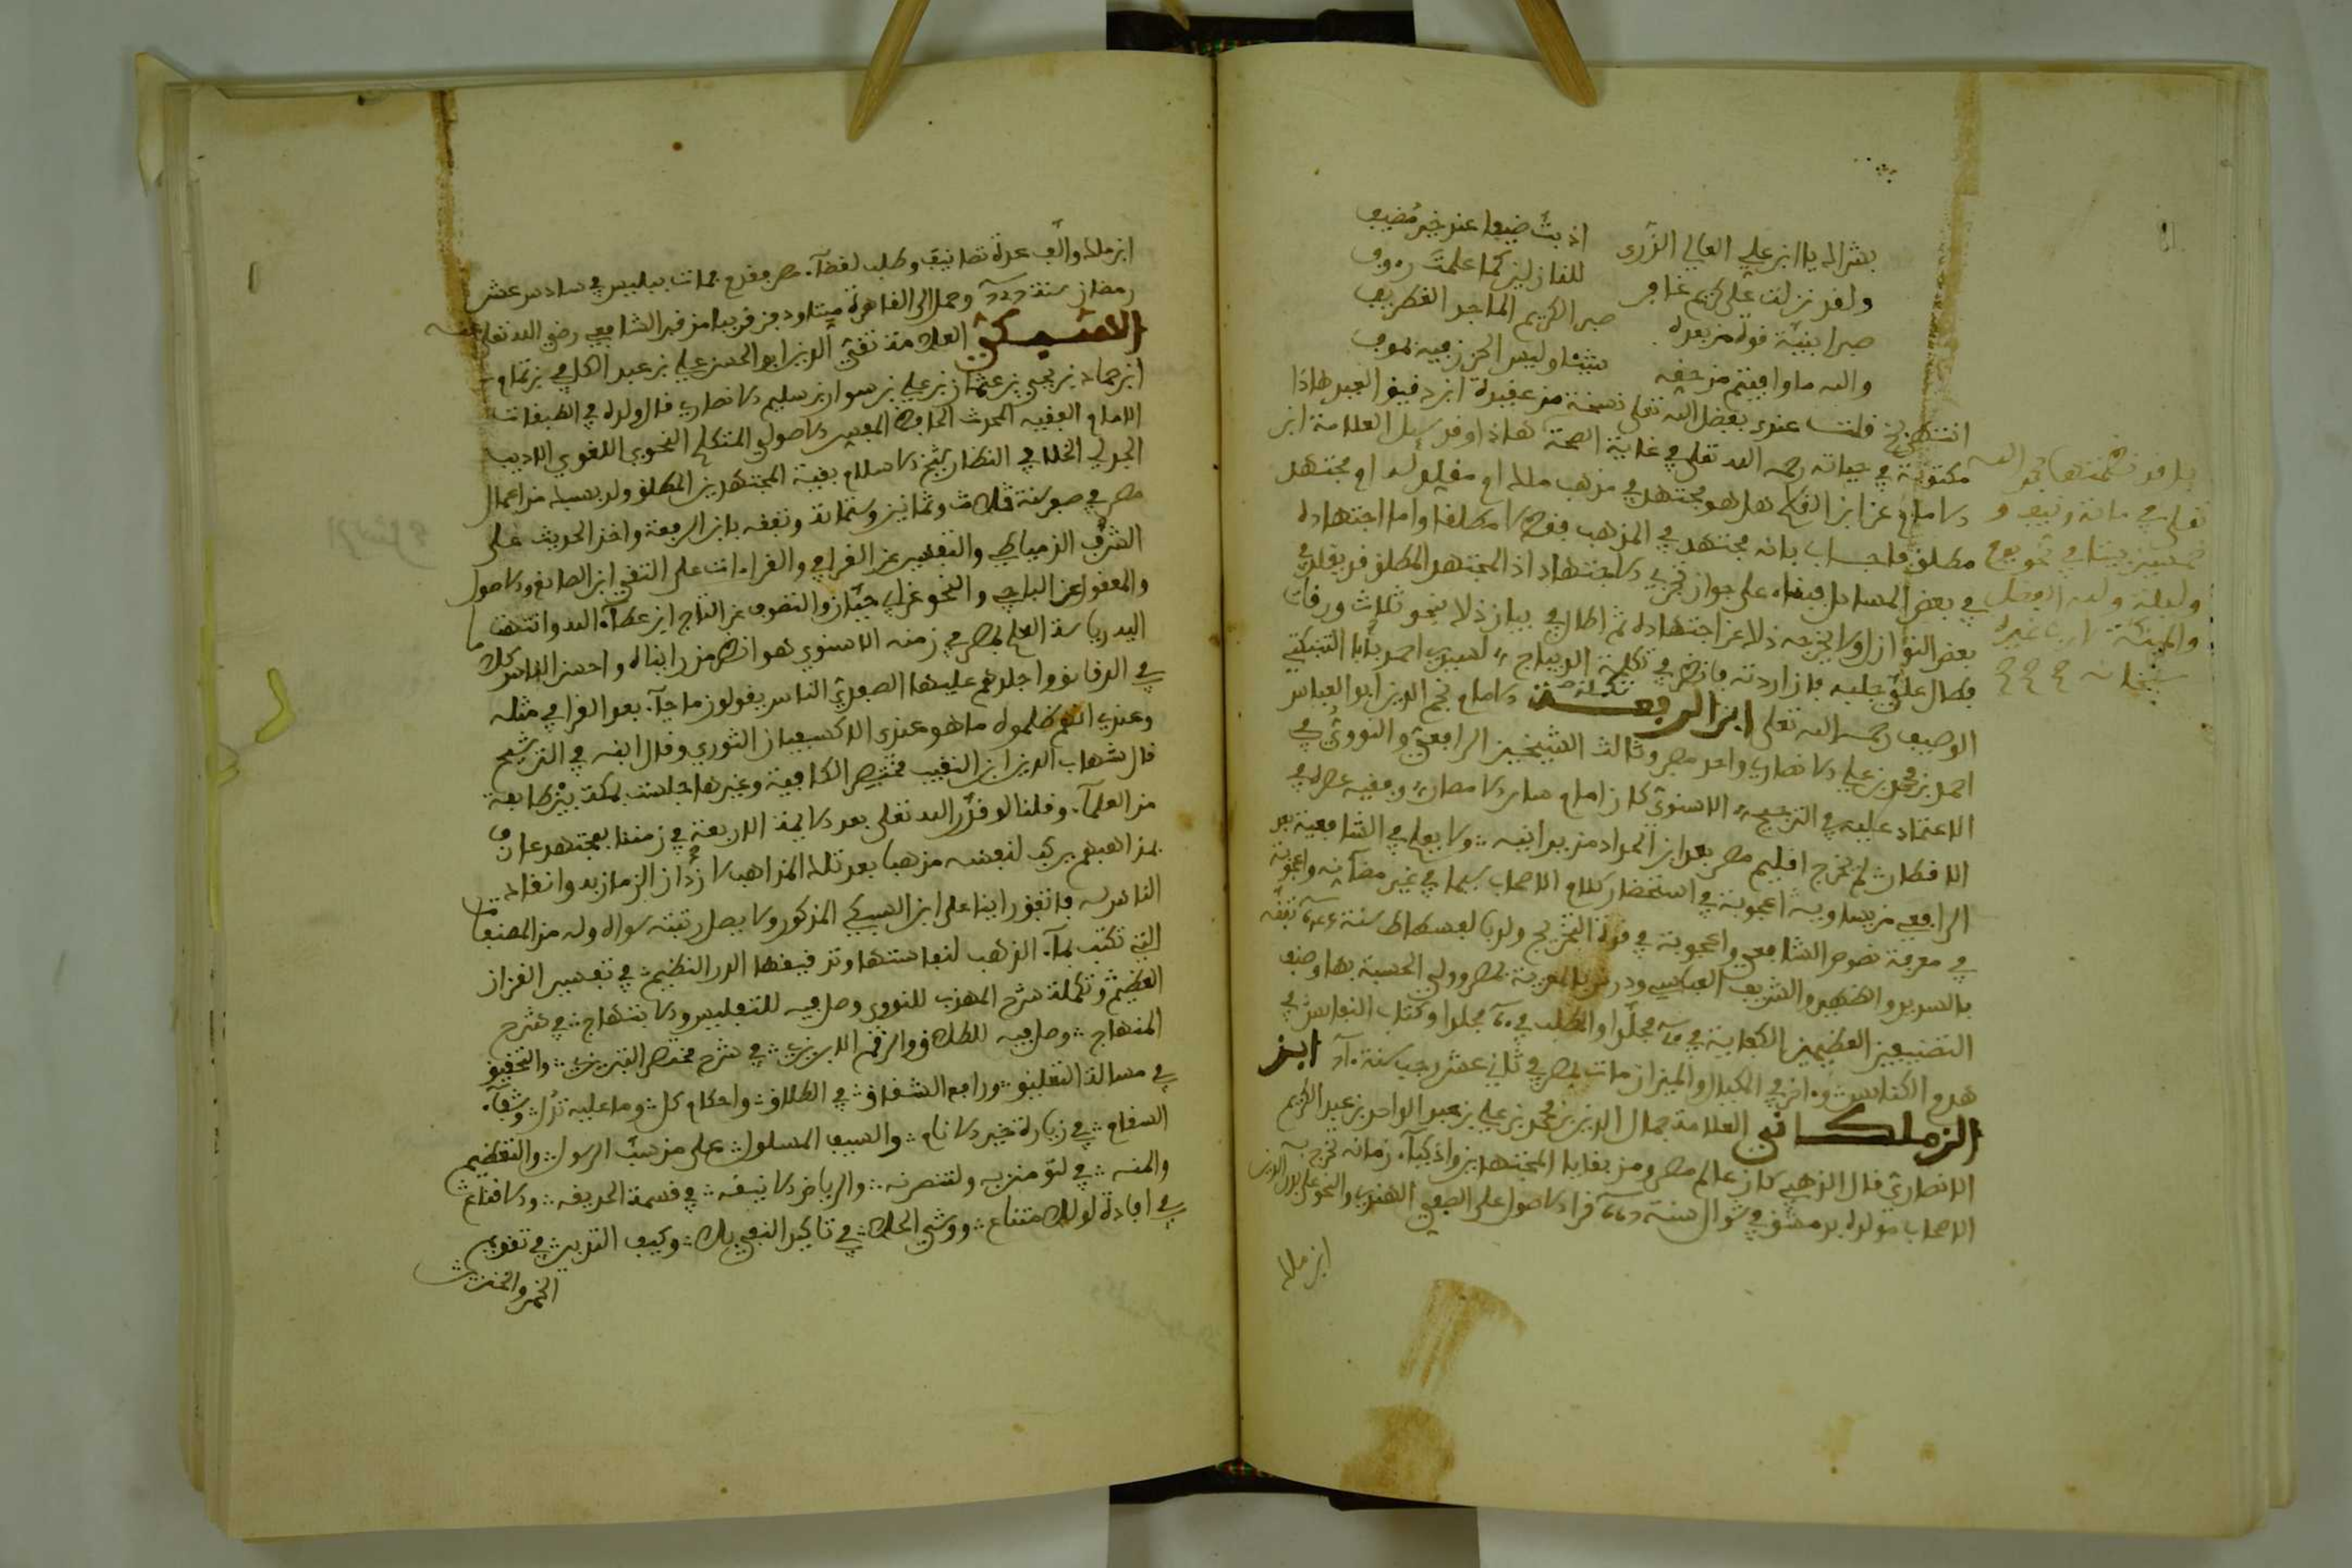 بشراك يا ابن علي العالي الذرى اذ بت ضيفا عند خير مضيف
ولقد نزلت على كريم غافر للنازلين كما علمت رءوف
صبرا بنيه فوة من بعده صبر الكريم الماجد الغطريف
والله ما وافيتم من حقه شيئا وليس الحزن فيه بموف
انتهى قلت عندي بفضل الله تعلى نسخة من عقيدة ابن دقيق العيد هاذا
مكتوبة في حياته رحمه الله تعلى في غاية الصحة هاذا وقد سيل العلامة ابن
الامام عن ابن القاسم هل هو مجتهد في مذهب مالك او مقلد له او مجتهد
مطلق فاجاب بانه مجتهد في المذهب فقط لا مطلقا واما اجتهاده
في بعض المسايل فبناء على جواز تجزي الاجتهاد اذ المجتهد المطلق قد يقلد في
بعض النوازل ولا يخرجه ذلك عن اجتهاده ثم اطال في بيان ذلك نحو ثلاث ورقات
فطال علي جلبه فان اردته فانظر في تكملة الديباج لسيدي احمد بابا التنبكتي
الوصيف رحمه الله تعلى ابن الرفعة الامام نجم الدين ابو العباس
احمد بن محمد بن علي الانصاري واحد مصر وثالث الشيخين الرافعي والنووي في
الاعتماد عليه في الترجيح الاسنوي كان امام ساير الامصار وفقيه عصره في
الاقطار لم يخرج اقليم مصر بعد ابن الحداد من يدانيه ولا يعلم في الشافعية بعد
الرافعي من يساويه اعجوبة في استحضار كلام الاصحاب سيما في غير مضانه واعجوبة
في معرفة نصوص الشافعي واعجوبة في قوة التخريج ولد بالفسطاط سنة تفقه
بالسديد والظهير والشريف العباسي ودرس بالمعزية بمصر وولي الحسبة بها وصنف
التصنيفين العظيمين الكفاية في مجلدا والمطلب في مجلدا وكتاب النفايس في
هدم الكنايس واخر في المكيال والميزان مات بمصر في ثاني عشر رجب سنة ابن
الزملكاني العلامة جمال الدين بن محمد بن علي بن عبد الواحد بن عبد الكريم
الانصاري قال الذهبي كان عالم مصر ومن بقايا المجتهدين واذكياء زمانه تخرج به
الاصحاب مولده بدمشق في شوال سنة قرا الاصول على الصفي الهندي والنحو على بدر الدين
ابن مالك
تعلى في ماية ونيف و
خمسين بيتا في نحو يوم
وليلة ولله الفضل
والمنة لا رب غيره
سبحانه
ابن مالك والف عدة تصانيف وطلب لقضاء مصر فقدم فمات ببلبيس في سادس عشر
رمضان سنة وحمل الى القاهرة ميتا ودفن قريبا من قبر الشافعي رضي الله تعلى عنه
السبكي العلامة تقي الدين ابو الحسن علي بن عبد الكافي بن تمام
ابن حماد بن يحيى بن عثمان بن علي بن سوار بن سليم الانصاري قال ولده في الطبقات
الامام الفقيه المحدث الحافظ المفسر الاصولي المتكلم النحوي اللغوي الاديب
الجدلي الخلافي النظار شيخ الاسلام بقية المجتهدين المطلق ولد بسبك من اعمال
مصر في صفر سنة ثلاث وثمانين وستماية وتفقه بابن الرفعة واخذ الحديث على
الشرف الدمياطي والتفسير عن العراقي والقراءات على التقي ابن الصايغ والاصول
والمعقول عن الباجي والنحو عن ابي حيان والتصوف عن التاج ابن عطاء الله وانتهت
اليه رياسة العلم بمصر في زمنه الاسنوي هو انظر من رايناه واحسن الناس كلاما
في الدقايق واجلدهم عليها الصفدي الناس يقولون ما جاء بعد الغزالي مثله
وعندي انهم ظلموه ما هو عندي الا كسفيان الثوري وقال ابنه في الترشيح
قال شهاب الدين ابن النقيب مختصر الكفاية وغيرها جلست بمكة بين طايفة
من العلماء وقلنا لو قدر الله تعلى بعد الايمة الاربعة في زمننا بمجتهد عارف
بمذاهبهم يركب لنفسه مذهبا بعد تلك المذاهب لازدان الزمان به وانقاد
الناس له فاتفق راينا على ابن السبكي المذكور ولا يصل رتبته سواه وله من المصنفات
التي تكتب بماء الذهب لنفاستها وتدقيقها الدر النظيم في تفسير القران
العظيم وتكملة شرح المهذب للنووي وصل فيه للتفليس والابتهاج في شرح
المنهاج وصل فيه للطلاق والرقم الابريزي في شرح مختصر التبريزي والتحقيق
في مسالة التعليق ورافع الشقاق في الطلاق واحكام كل وما عليه تدل وشفاء
السقام في زيارة خير الانام والسيف المسلول على من سب الرسول والتعظيم
والمنه في لتومنن به ولتنصرنه والرياض الانيقه في قسمة الحديقه والاقناع
في افادة لو للامتناع ووشي الحلا في تاكيد النفي بلا وكيف التدبير في تقويم
الخمر والخنزير